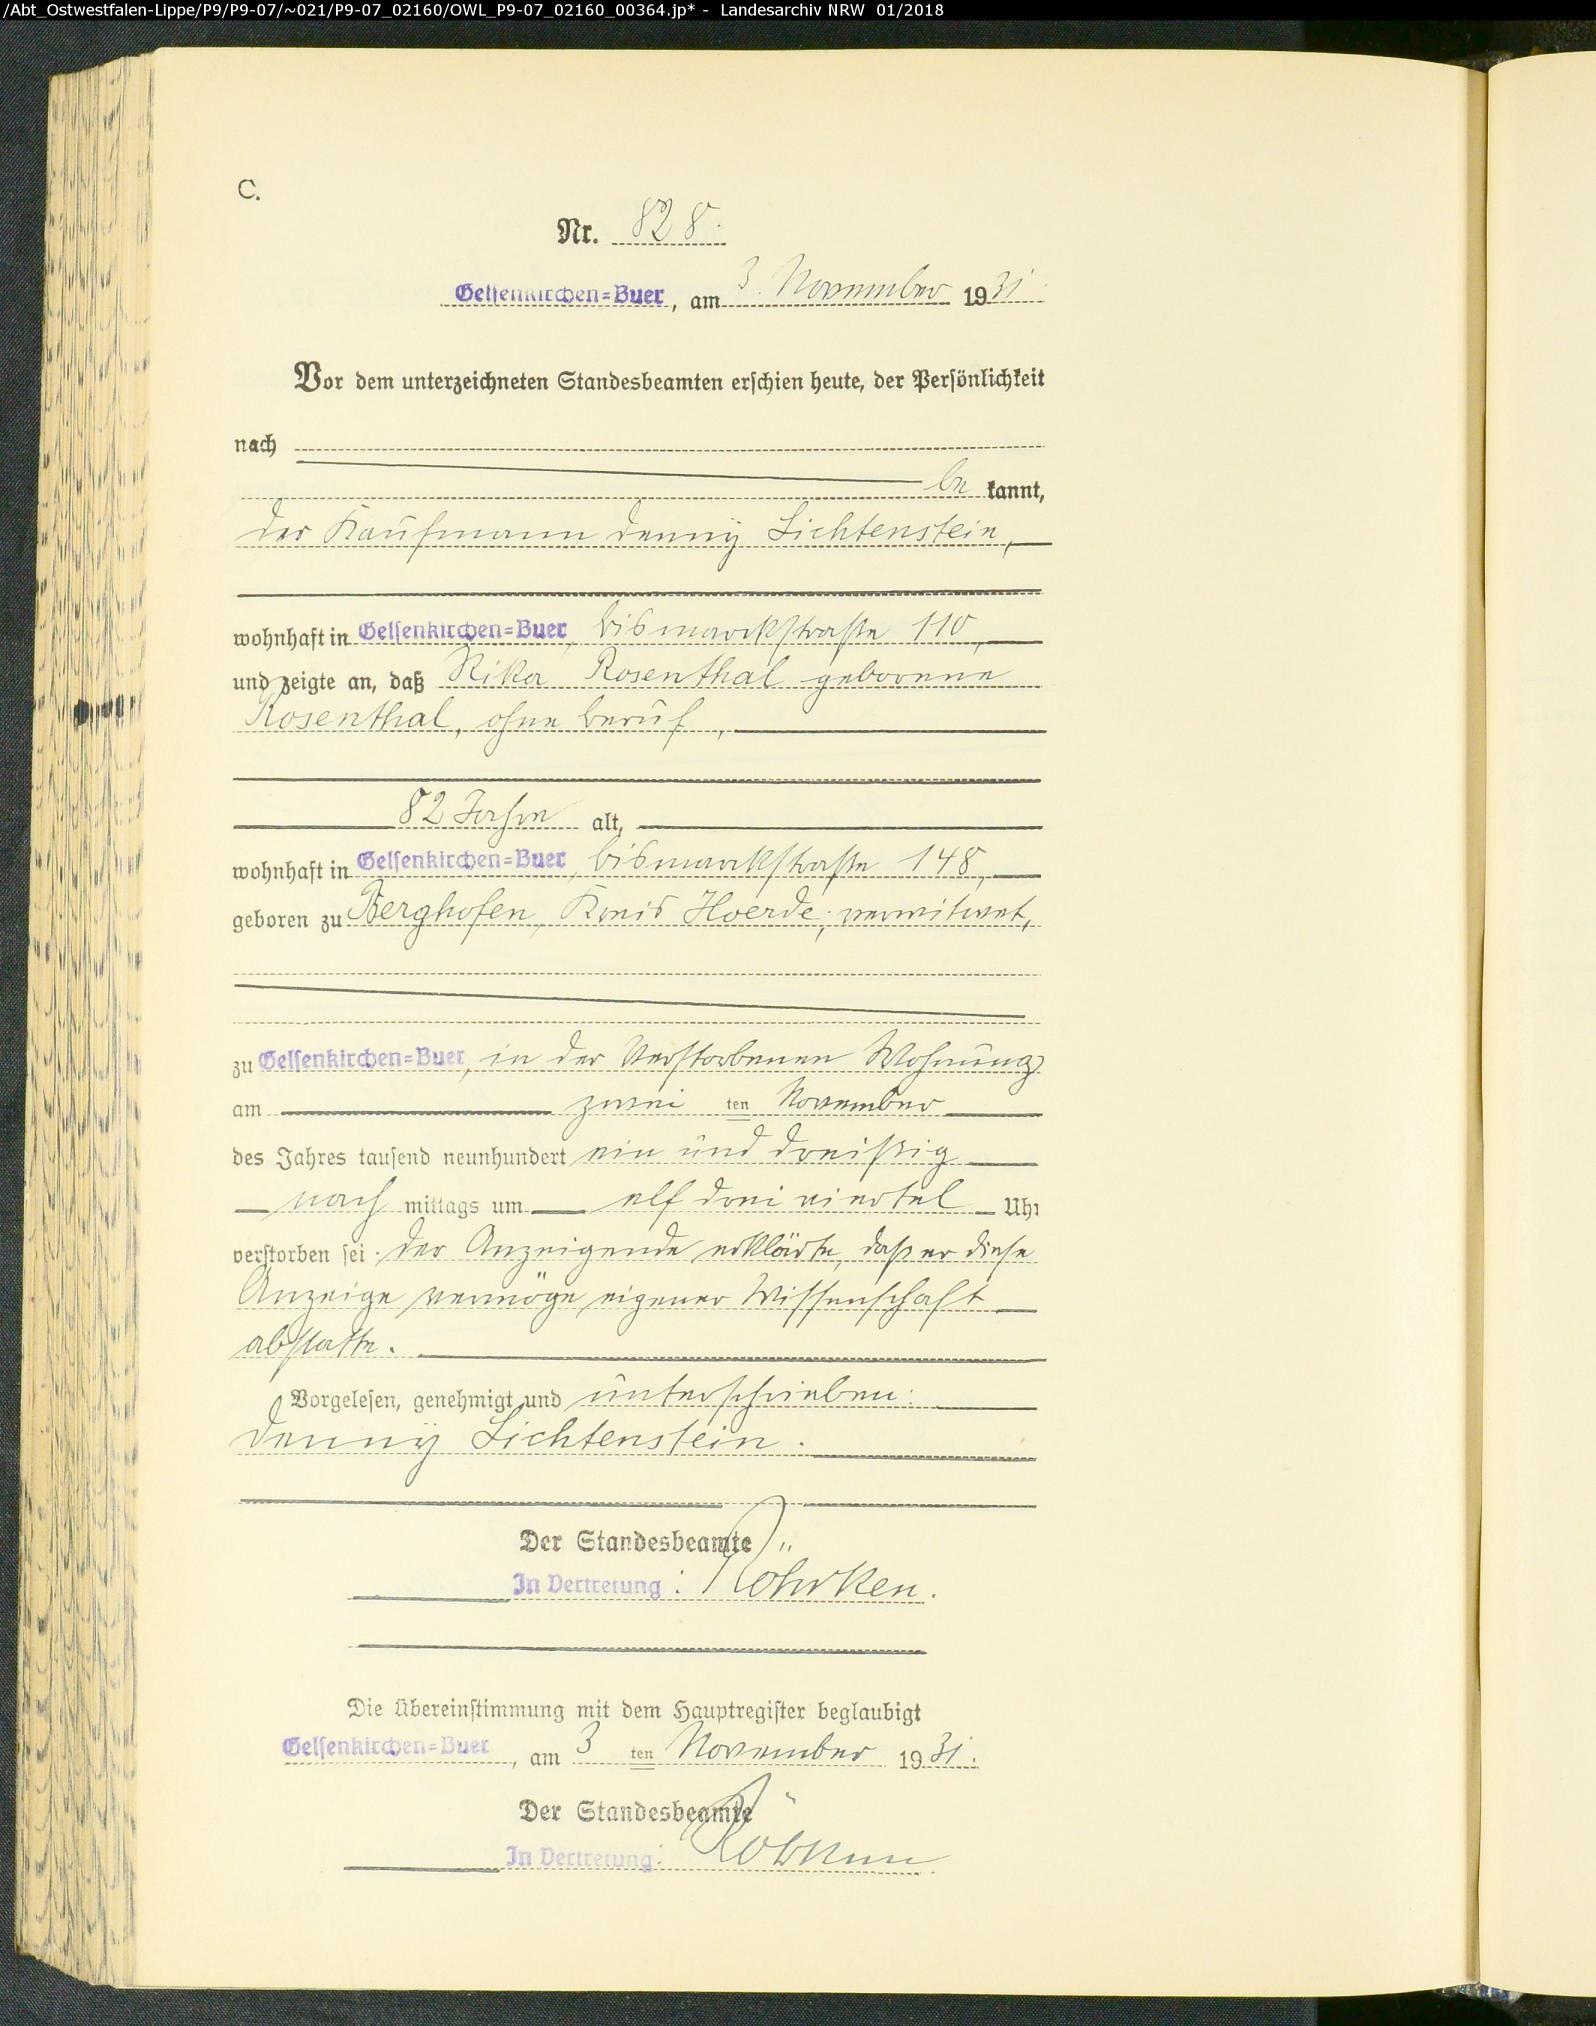 /Abt_Ostwestfalen-Lippe/P9/P9-07/~021/P9-07_02160/OWL_P9-07_02160_00364.jp* - Landesarchiv NRW 01/2018
C.
Nr. 828.
Gelsenkirchen=Buer, am 3. November 1931.
Vor dem unterzeichneten Standesbeamten erschien heute, der Persönlichkeit
nach
be kannt,
der Kaufmann Denny Lichtenstein,
wohnhaft in Gelsenkirchen=Buer, Bismarckstraße 110,
und zeigte an, daß Rika Rosenthal geborene
Rosenthal, ohne Beruf,
82 Jahre alt,
wohnhaft in Gelsenkirchen=Buer, Bismarckstraße 148,
geboren zu Berghofen, Kreis Hoerde, verwitwet,
zu Gelsenkirchen=Buer, in der Verstorbenen Wohnung
am zwei ten November
des Jahres tausend neunhundert ein und dreißig
nach mittags um elf drei viertel Uhr
verstorben sei. Der Anzeigende erklärte, daß er diese
Anzeige vermöge eigener Wissenschaft
abstatte.
Vorgelesen, genehmigt und unterschrieben:
Denny Lichtenstein.
Der Standesbeamte
In Vertretung: Röhrken.
Die Übereinstimmung mit dem Hauptregister beglaubigt
Gelsenkirchen=Buer, am 3 ten November 1931.
Der Standesbeamte
In Vertretung: